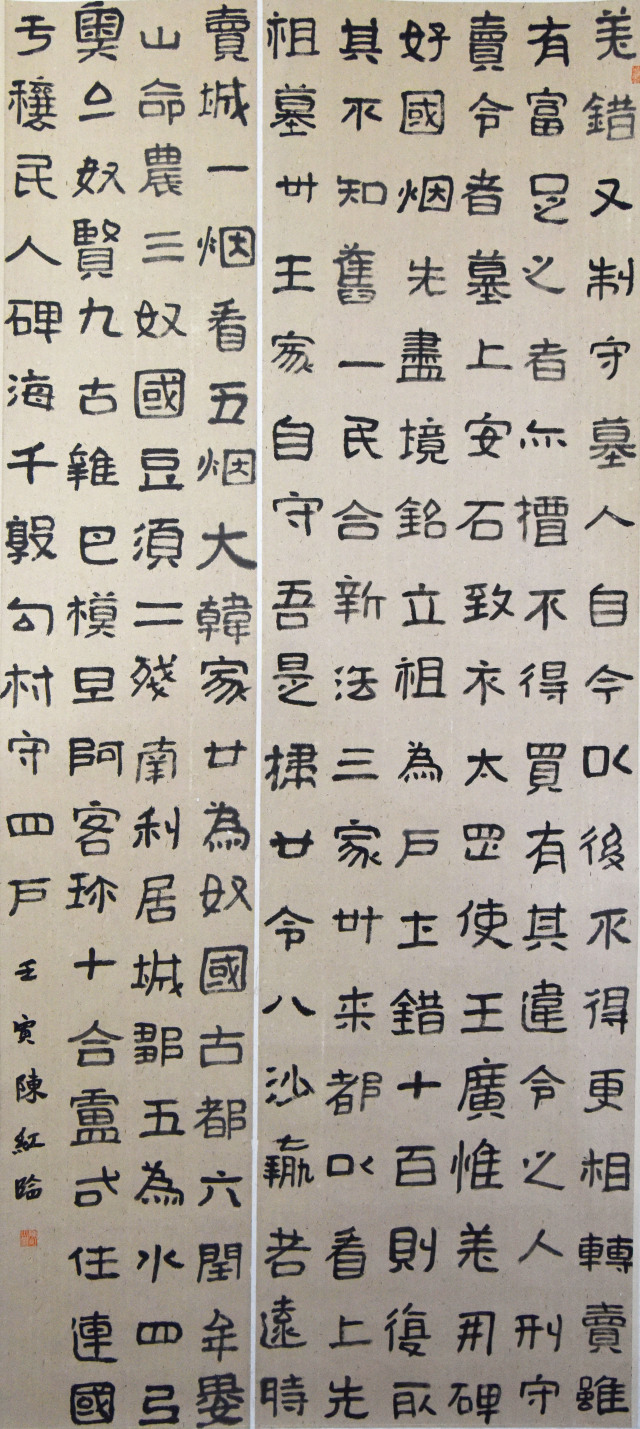 羌錯又制守墓人自今以後不得更相轉賣雖
有富足之者亦擅不得買有其違令之人刑守
賣令者墓上安石致衣太罡使王廣惟羌用碑
好國烟先盡境銘立祖為戶土錯十百則復取
其不知舊一民合新法三家卅来都以看上先
祖墓卅王家自守吾是掃廿令八沙若遠時
賣城一烟看五烟大韓家廿為奴國古都六閏牟婁
山命農三奴國豆須二殘南利居城鄒五為水四弓
奧亡奴賢九古雜巴模旦阿客珎十合盧弍住連國
于穰民人碑海千敦勾村守四戶
壬寅陳紅臨